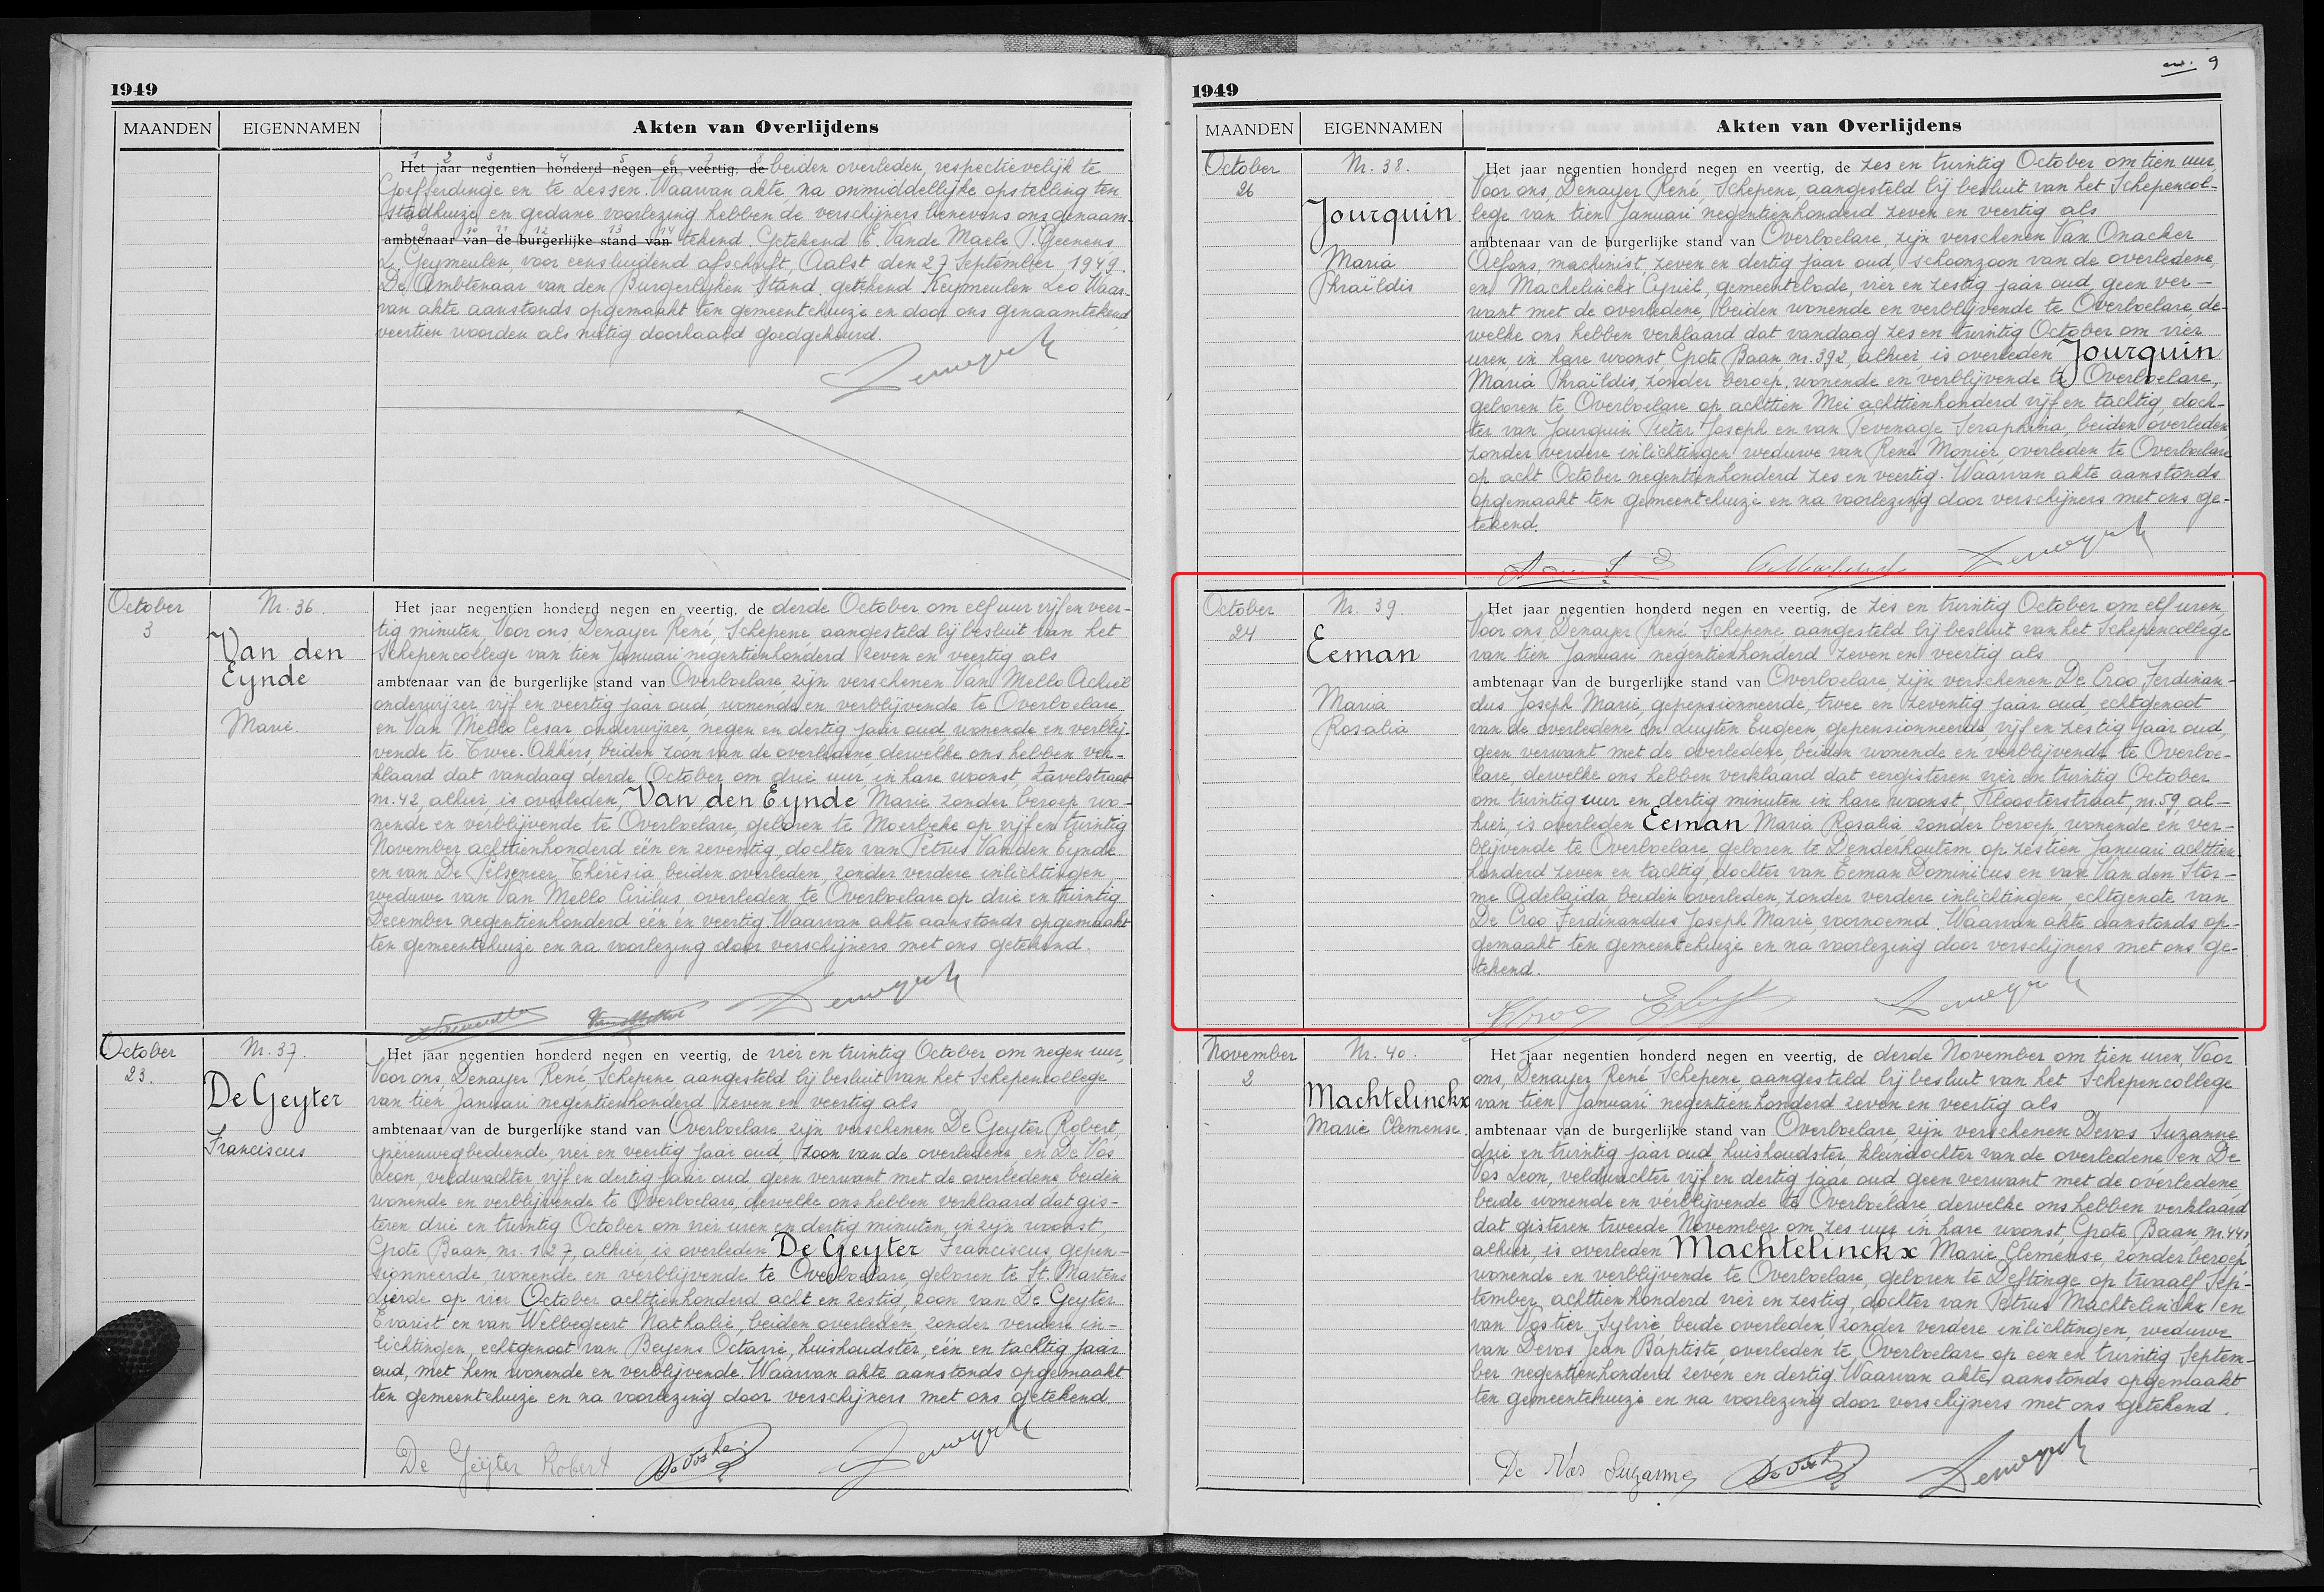 1949
MAANDEN EIGENNAMEN Akten van Overlijdens
1 2 3 4 5 6 7 8
Het jaar negentien honderd negen en veertig, de beiden overleden, respectievelijk te
Goefferdinge en te Lessen. Waarvan akte, na onmiddellijke opstelling ten
stadhuize en gedane voorlezing hebben de verschijners benevens ons genaam-
9 10 11 12 13 14
ambtenaar van de burgerlijke stand van tekend. Getekend E. Vande Maele P. Geenens
L. Geymeulen, voor eensluidend afschrift, Aalst den 27 September 1949.
De Ambtenaar van den Burgerlijken Stand. getekend Keymeulen Leo Waar-
van akte aanstonds opgemaakt ten gemeentehuize en door ons genaamtekend
veertien woorden als nietig doorhaald goedgekeurd.
October
3
Nr. 36.
Van den
Eynde
Marie.
Het jaar negentien honderd negen en veertig, de derde October om elf uur vijf en veer-
tig minuten, Voor ons, Denayer René, Schepene, aangesteld bij besluit van het
Schepencollege van tien Januari negentienhonderd zeven en veertig als
ambtenaar van de burgerlijke stand van Overboelare, zijn verschenen Van Mello Achiel
onderwijzer vijf en veertig jaar oud, wonende en verblijvende te Overboelare
en Van Mello Cesar onderwijzer, negen en dertig jaar oud wonende en verblij-
vende te Twee-Akkers, beiden zoon van de overledene dewelke ons hebben ver-
klaard dat vandaag derde October om drie uur, in hare woonst, Zavelstraat
nr. 42, alhier, is overleden, Van den Eynde Marie, zonder beroep wo-
nende en verblijvende te Overboelare, geboren te Moerbeke op vijf en twintig
November achttienhonderd één en zeventig, dochter van Petrus Van den Eynde
en van De Pelseneer Thérèsia beiden overleden, zonder verdere inlichtingen,
weduwe van Van Mello Cirilus, overleden te Overboelare op drie en twintig
December negentienhonderd één en veertig. Waarvan akte aanstonds opgemaakt
ten gemeentehuize en na voorlezing door verschijners met ons getekend.
October
23.
Nr. 37.
De Geyter
Franciscus
Het jaar negentien honderd negen en veertig, de vier en twintig October om negen uur,
Voor ons, Denayer René, Schepene, aangesteld bij besluit van het Schepencollege
van tien Januari negentienhonderd zeven en veertig als
ambtenaar van de burgerlijke stand van Overboelare, zijn verschenen De Geyter Robert,
ijzerenwegbediende, vier en veertig jaar oud, zoon van de overledene, en De Vos
Leon, veldwachter, vijf en dertig jaar oud, geen verwant met de overledene beiden
wonende en verblijvende te Overboelare, dewelke ons hebben verklaard dat gis-
teren drie en twintig October om vier uren en dertig minuten, in zijn woonst,
Grote Baan, nr. 127, alhier is overleden De Geyter Franciscus, gepen-
sionneerde, wonende en verblijvende te Overboelare, geboren te St. Martens
Lierde op vier October achttienhonderd acht en zestig, zoon van De Geyter
Evarist en van Welbegeert Nathalie, beiden overleden, zonder verdere in-
lichtingen, echtgenoot van Beyens Octavie, huishoudster, één en tachtig jaar
oud, met hem wonende en verblijvende. Waarvan akte aanstonds opgemaakt
ten gemeentehuize en na voorlezing door verschijners met ons getekend.
De Geyter Robert
9
1949
MAANDEN EIGENNAMEN Akten van Overlijdens
October
26
Nr. 38.
Jourquin
Maria
Phraïldis
Het jaar negentien honderd negen en veertig, de zes en twintig October om tien uur,
Voor ons, Denayer René, Schepene, aangesteld bij besluit van het Schepencol-
lege van tien Januari negentienhonderd zeven en veertig als
ambtenaar van de burgerlijke stand van Overboelare, zijn verschenen Van Onacker
Alfons, machinist, zeven en dertig jaar oud, schoonzoon van de overledene,
en Machelinckx Cyriel, gemeentebode, vier en zestig jaar oud, geen ver-
want met de overledene, beiden wonende en verblijvende te Overboelare, de-
welke ons hebben verklaard dat vandaag zes en twintig October om vier
uren, in hare woonst, Grote Baan, nr. 392, alhier, is overleden Jourquin
Maria Phraïldis, zonder beroep, wonende en verblijvende te Overboelare,
geboren te Overboelare op achttien Mei achttienhonderd vijf en tachtig, doch-
ter van Jourquin Pieter Joseph en van Pevenage Seraphina, beiden overleden,
zonder verdere inlichtingen weduwe van René Monier, overleden te Overboelare
op acht October negentienhonderd zes en veertig. Waarvan akte aanstonds
opgemaakt ten gemeentehuize en na voorlezing door verschijners met ons ge-
tekend.
October
24
Nr. 39.
Eeman
Maria
Rosalia
Het jaar negentien honderd negen en veertig, de zes en twintig October om elf uren,
Voor ons, Denayer René Schepene, aangesteld bij besluit van het Schepencollege
van tien Januari negentienhonderd zeven en veertig als
ambtenaar van de burgerlijke stand van Overboelare, zijn verschenen De Croo Ferdinan-
dus Joseph Marie, gepensionneerde, twee en zeventig jaar oud, echtgenoot
van de overledene en Luyten Eugeen, gepensionneerde, vijf en zestig jaar oud,
geen verwant met de overledene, beiden wonende en verblijvende te Overboe-
lare, dewelke ons hebben verklaard dat eergisteren vier en twintig October
om twintig uur en dertig minuten in hare woonst, Kloosterstraat, nr. 59, al-
hier, is overleden Eeman Maria Rosalia zonder beroep, wonende en ver-
blijvende te Overboelare, geboren te Denderhoutem op zestien Januari achttien-
honderd zeven en tachtig, dochter van Eeman Dominicus en van Van den Stor-
me Adelaïda, beiden overleden, zonder verdere inlichtingen, echtgenote van
De Croo Ferdinandus Joseph Marie, voornoemd. Waarvan akte aanstonds op-
gemaakt ten gemeentehuize en na voorlezing door verschijners met ons ge-
tekend.
November
2
Nr. 40.
Machtelinckx
Marie Clemense.
Het jaar negentien honderd negen en veertig, de derde November om tien uren, Voor
ons, Denayer René Schepene, aangesteld bij besluit van het Schepencollege
van tien Januari negentienhonderd zeven en veertig als
ambtenaar van de burgerlijke stand van Overboelare, zijn verschenen Devos Suzanne
drie en twintig jaar oud, huishoudster, kleindochter van de overledene en De
Vos Leon, veldwachter vijf en dertig jaar oud geen verwant met de overledene
beide wonende en verblijvende te Overboelare dewelke ons hebben verklaard
dat gisteren tweede November om zes uur in hare woonst, Grote Baan, nr. 441
alhier, is overleden Machtelinckx Marie Clemense, zonder beroep
wonende en verblijvende te Overboelare, geboren te Deftinge op twaalf Sep-
tember achttienhonderd vier en zestig, dochter van Petrus Machtelinckx en
van Vostier Sylvie, beide overleden, zonder verdere inlichtingen, weduwe
van Devos Jean Baptiste, overleden te Overboelare op een en twintig Septem-
ber negentienhonderd zeven en dertig. Waarvan akte aanstonds opgemaakt
ten gemeentehuize en na voorlezing door verschijners met ons getekend.
De Vos Suzanne